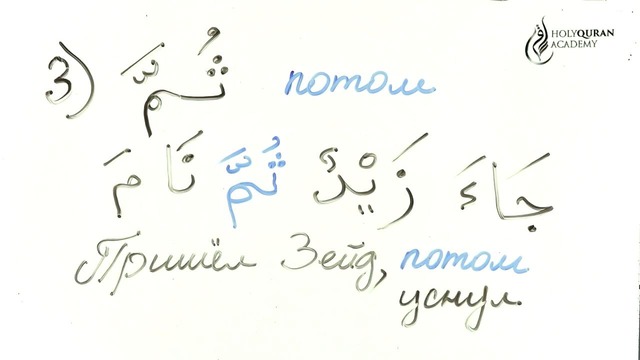 HOLYQURAN
ACADEMY
3) ثُمَّ потом
جَاءَ زَيْدٌ ثُمَّ نَامَ
Пришёл Зейд, потом
уснул